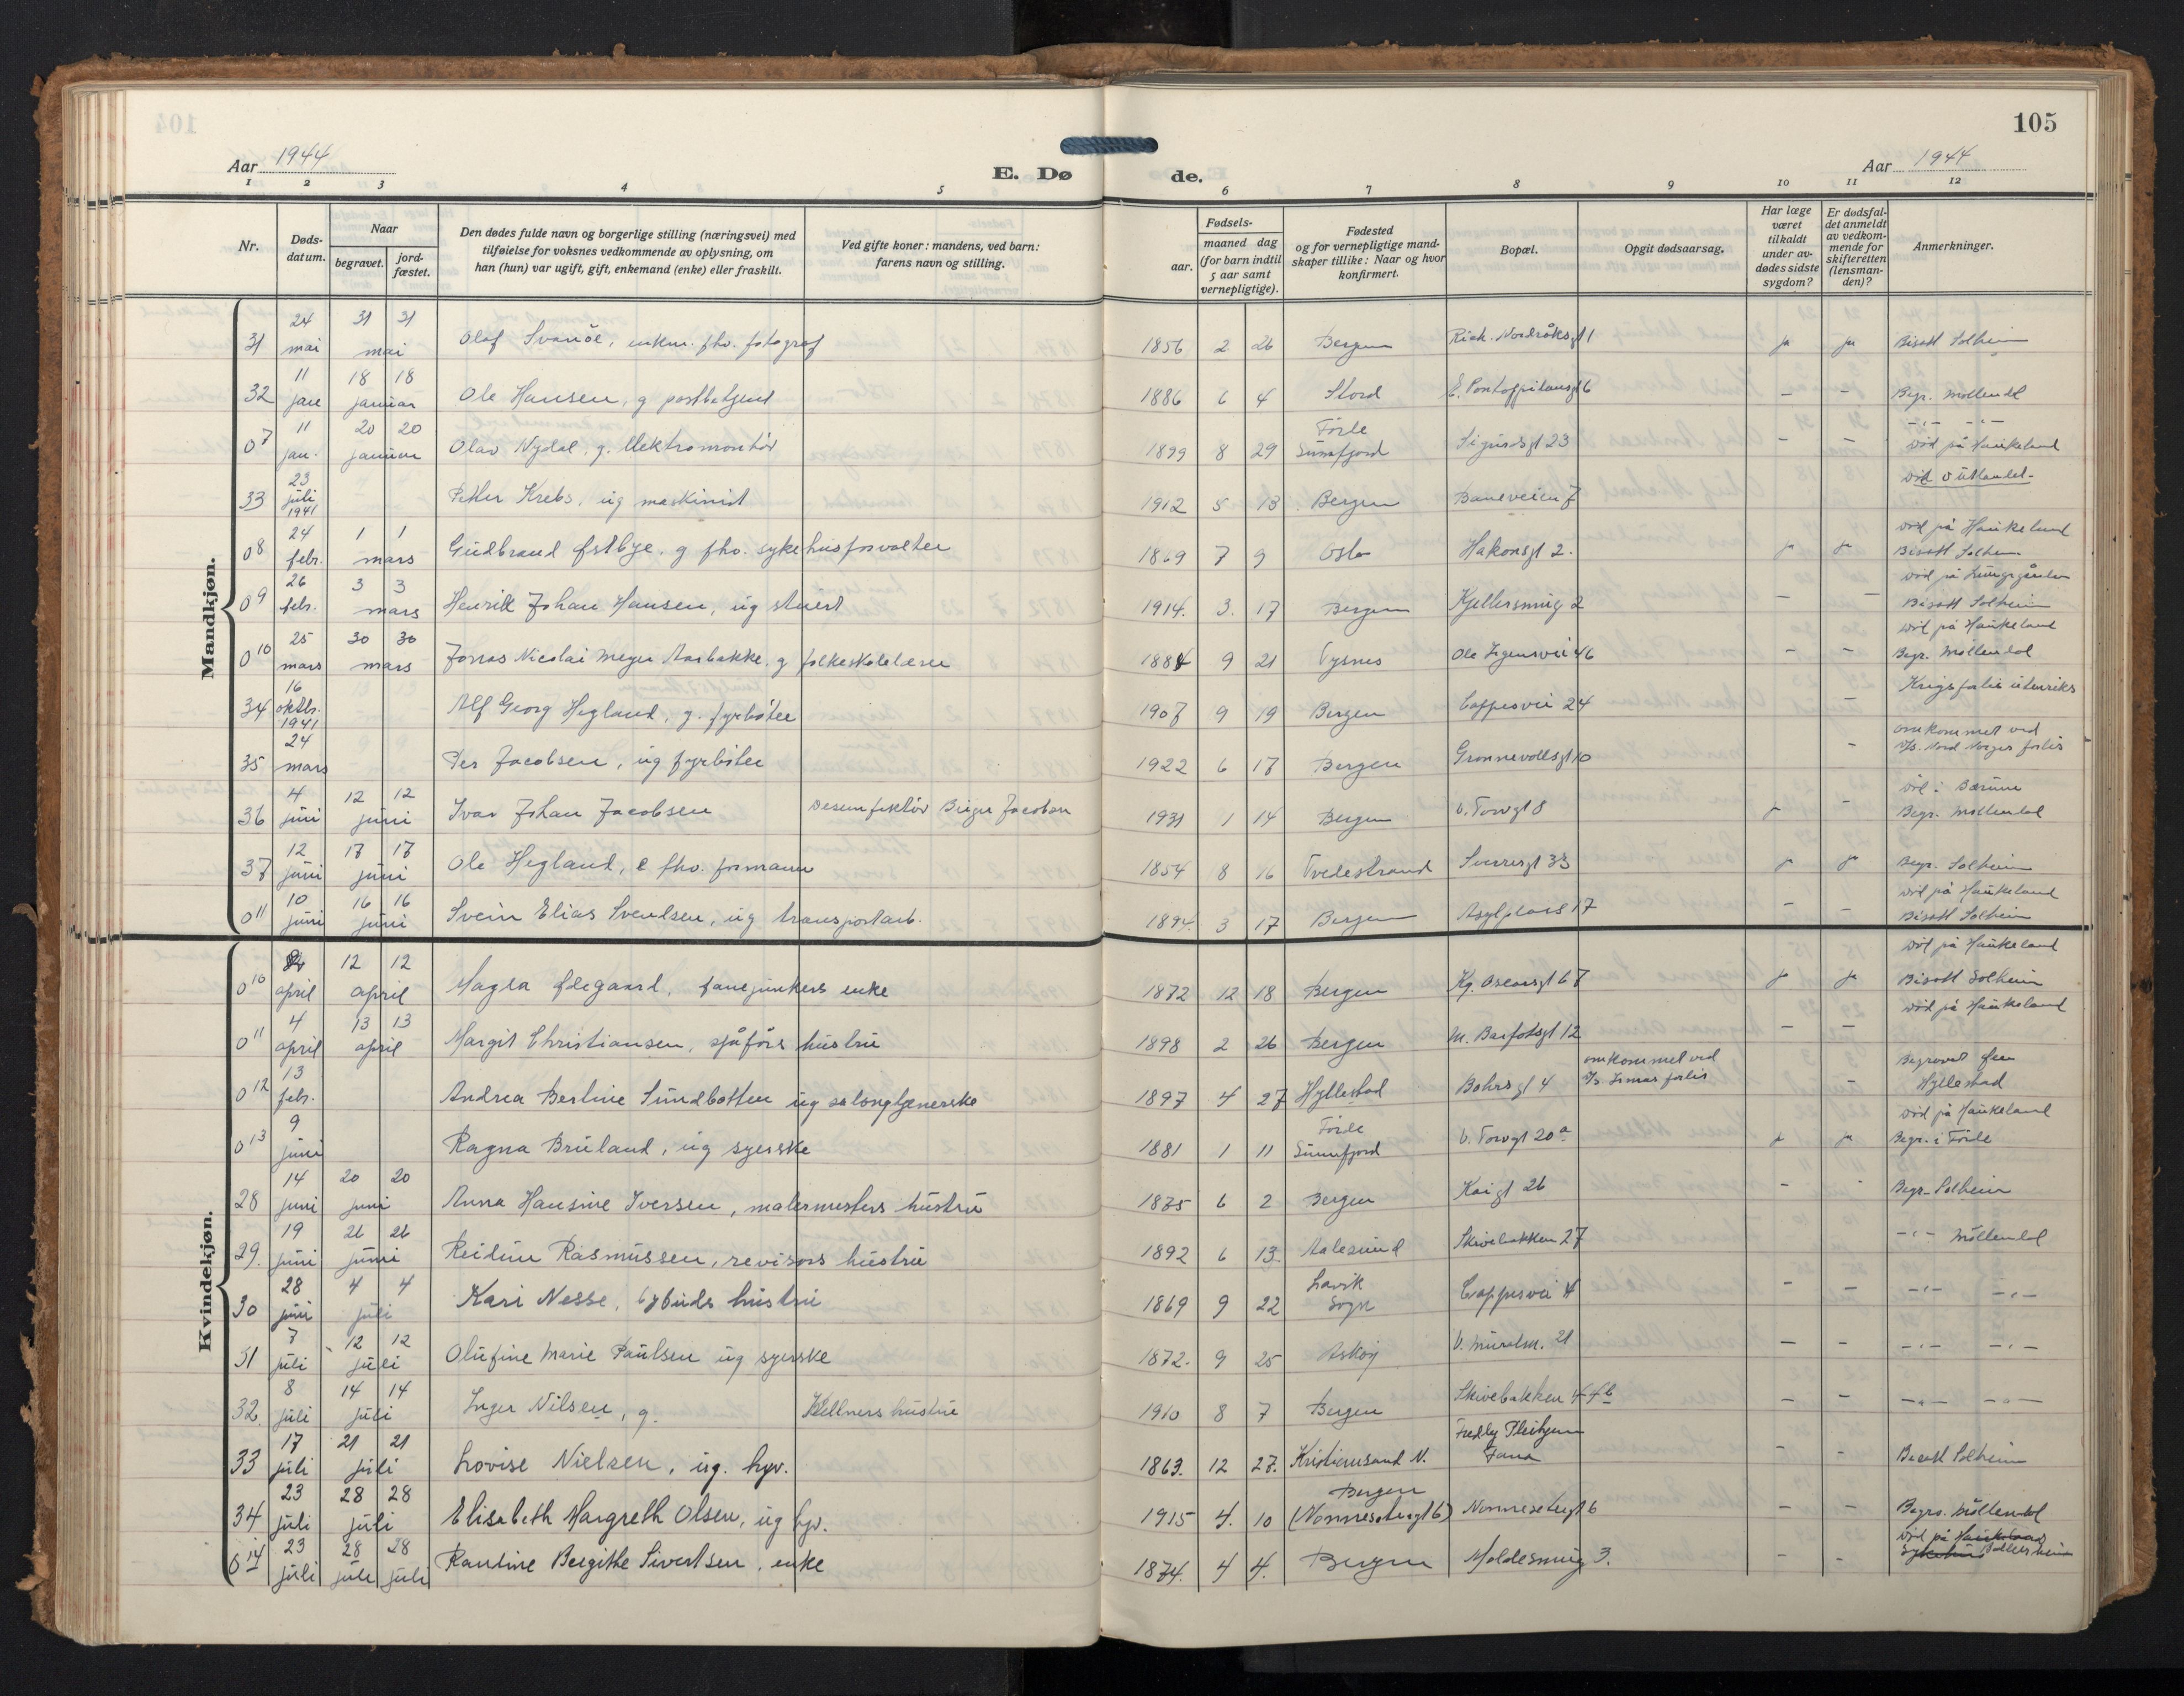 104
105
Aar 1944
E. Dø
de.
Aar 1944
1 2 3 4 5 6 7 8 9 10 11 12
Nr.
Døds-datum.
Naar
begravet.
jord-fæstet.
Den dødes fulde navn og borgerlige stilling (næringsvei) med
tilføielse for voksnes vedkommende av oplysning, om
han (hun) var ugift, gift, enkemand (enke) eller fraskilt.
Ved gifte koner: mandens, ved barn:
farens navn og stilling.
Fødsels-
aar.
maaned dag
(for barn indtil
5 aar samt
vernepligtige).
Fødested
og for vernepligtige mand-
skaper tillike: Naar og hvor
konfirmert.
Bopæl.
Opgit dødsaarsag.
Har læge
været
tilkaldt
under av-
dødes sidste
sygdom?
Er dødsfal-
det anmeldt
av vedkom-
mende for
skifteretten
(lensman-
den)?
Anmerkninger.
Mandkjøn.
31 24 mai 31 31 mai Olaf Svanöe, enkm. fhv. fotograf 1856 2 26 Bergen Rich. Nordråksgt 1 ja ja Bisatt Solheim
32 11 jan 18 18 januar Ole Hansen, g postbetjent 1886 6 4 Stord E. Pontoppidansgt 6 - - Begr. Möllendal
07 11 jan. 20 20 januar Olav Nydal, g. elektromontör 1899 8 29 Förde Sunnfjord Sigurdsgt 23 - - -"- -"- död på Haukeland
33 23 juli 1941 Petter Krebs, ug maskinist 1912 5 13 Bergen Baneveien 7 död i utlandet.
08 24 febr. 1 1 mars Gudbrand Østbye, g fhv. sykehusforvalter 1869 7 9 Oslo Hakonsgt 2. ja ja död på Haukeland Bisatt Solheim
09 26 febr. 3 3 mars Henrik Johan Hansen, ug stuert 1914. 3. 17 Bergen Kjellersmug 2 - - död på Lungegården Bisatt Solheim
010 25 mars 30 30 mars Jonas Nicolai Meyer Aarbakke, g folkeskolelærer 1884 9 21 Tysnes Ole Irgensvei 46 - - död på Haukeland Begr. Möllendal
34 16 oktbr. 1941 Alf Georg Hegland, g. fyrböter 1907 9 19 Bergen Cappesvei 24 - Krigsforlis utenriks
35 24 mars Per Jacobsen, ug fyrböter 1922 6 17 Bergen Grønnevollsgt 10 - omkommet ved D/S. Nord Norges forlis
36 4 juni 12 12 juni Ivar Johan Jacobsen Desinfektör Birger Jacobsen 1931 1 14 Bergen V. Torvgt 8 ja - död i Bærum Begr. Möllendal
37 12 juni 17 17 juni Ole Hegland, e fhv. formann 1854 8 16 Tvedestrand Sverresgt 33 ja ja Begr. Solheim
011 10 juni 16 16 juni Svein Elias Svendsen, ug transportarb. 1894. 3 17 Bergen Asylplass 17 - - död på Haukeland Bisatt Solheim
Kvindekjøn.
010 april 12 12 april Magda Ødegaard, fanejunkers enke 1872 12 18 Bergen Kg. Oscarsgt 67 ja ja död på Haukeland Bisatt Solheim
011 4 april 13 13 april Margit Christiansen, sjåførs hustru 1898 2 26 Bergen M. Barfotsgt 12 - - död på Haukeland
012 13 febr. Andrea Berline Sundbotten ug salongpenerske 1897 4 27 Hyllestad Bohrsgt 4 omkommet ved D/S Irmas forlis - Begravet Øen Hyllestad
013 9 juni Ragna Bruland, ug syerske 1881 1 11 Förde Sunnfjord V. Torvgt 20a ja ja död på Haukeland Begr. i Förde
28 14 juni 20 20 juni Anna Hansine Iversen, malermesters hustru 1885 6 2 Bergen Kaigt 26 - - Begr. Solheim
29. 19 juni 26 26 juni Reidun Rasmussen, revisors hustru 1892 6 13. Aalesund Skivebakken 27 -"- Möllendal
30 28 juni 4 4 juli Kari Nesse, bybuds hustru 1869 9 22 Lavik Sogn Cappesvei 4 - - -"- -"-
31 7 juli 12 12 juli Olufine Marie Paulsen ug syerske 1872. 9 25 Askøy V. Muralm. 21 - - -"- -"-
32. 8 juli 14 14 juli Inger Nilsen, g. Kellners hustru 1910 8 7 Bergen Skivebakken 44b - - -"- -"-
33 17 juli 21 21 juli Lovise Nielsen, ug. hgv. 1863. 12 27. Kristiansand N. Fredly Pleihjem Fana - - Bisatt Solheim
34 23 juli 28 28 juli Elisabeth Margreth Olsen, ug hgv. 1915 4. 10 Bergen (Nonnesetergt 6) Nonnesetergt 6 - - Begrv. Möllendal
014 23 juli 28 juli 28 juli Pauline Bergithe Sivertsen, enke 1874. 4 4. Bergen Moldesmug 3. - - död på Haukeland Sykehus